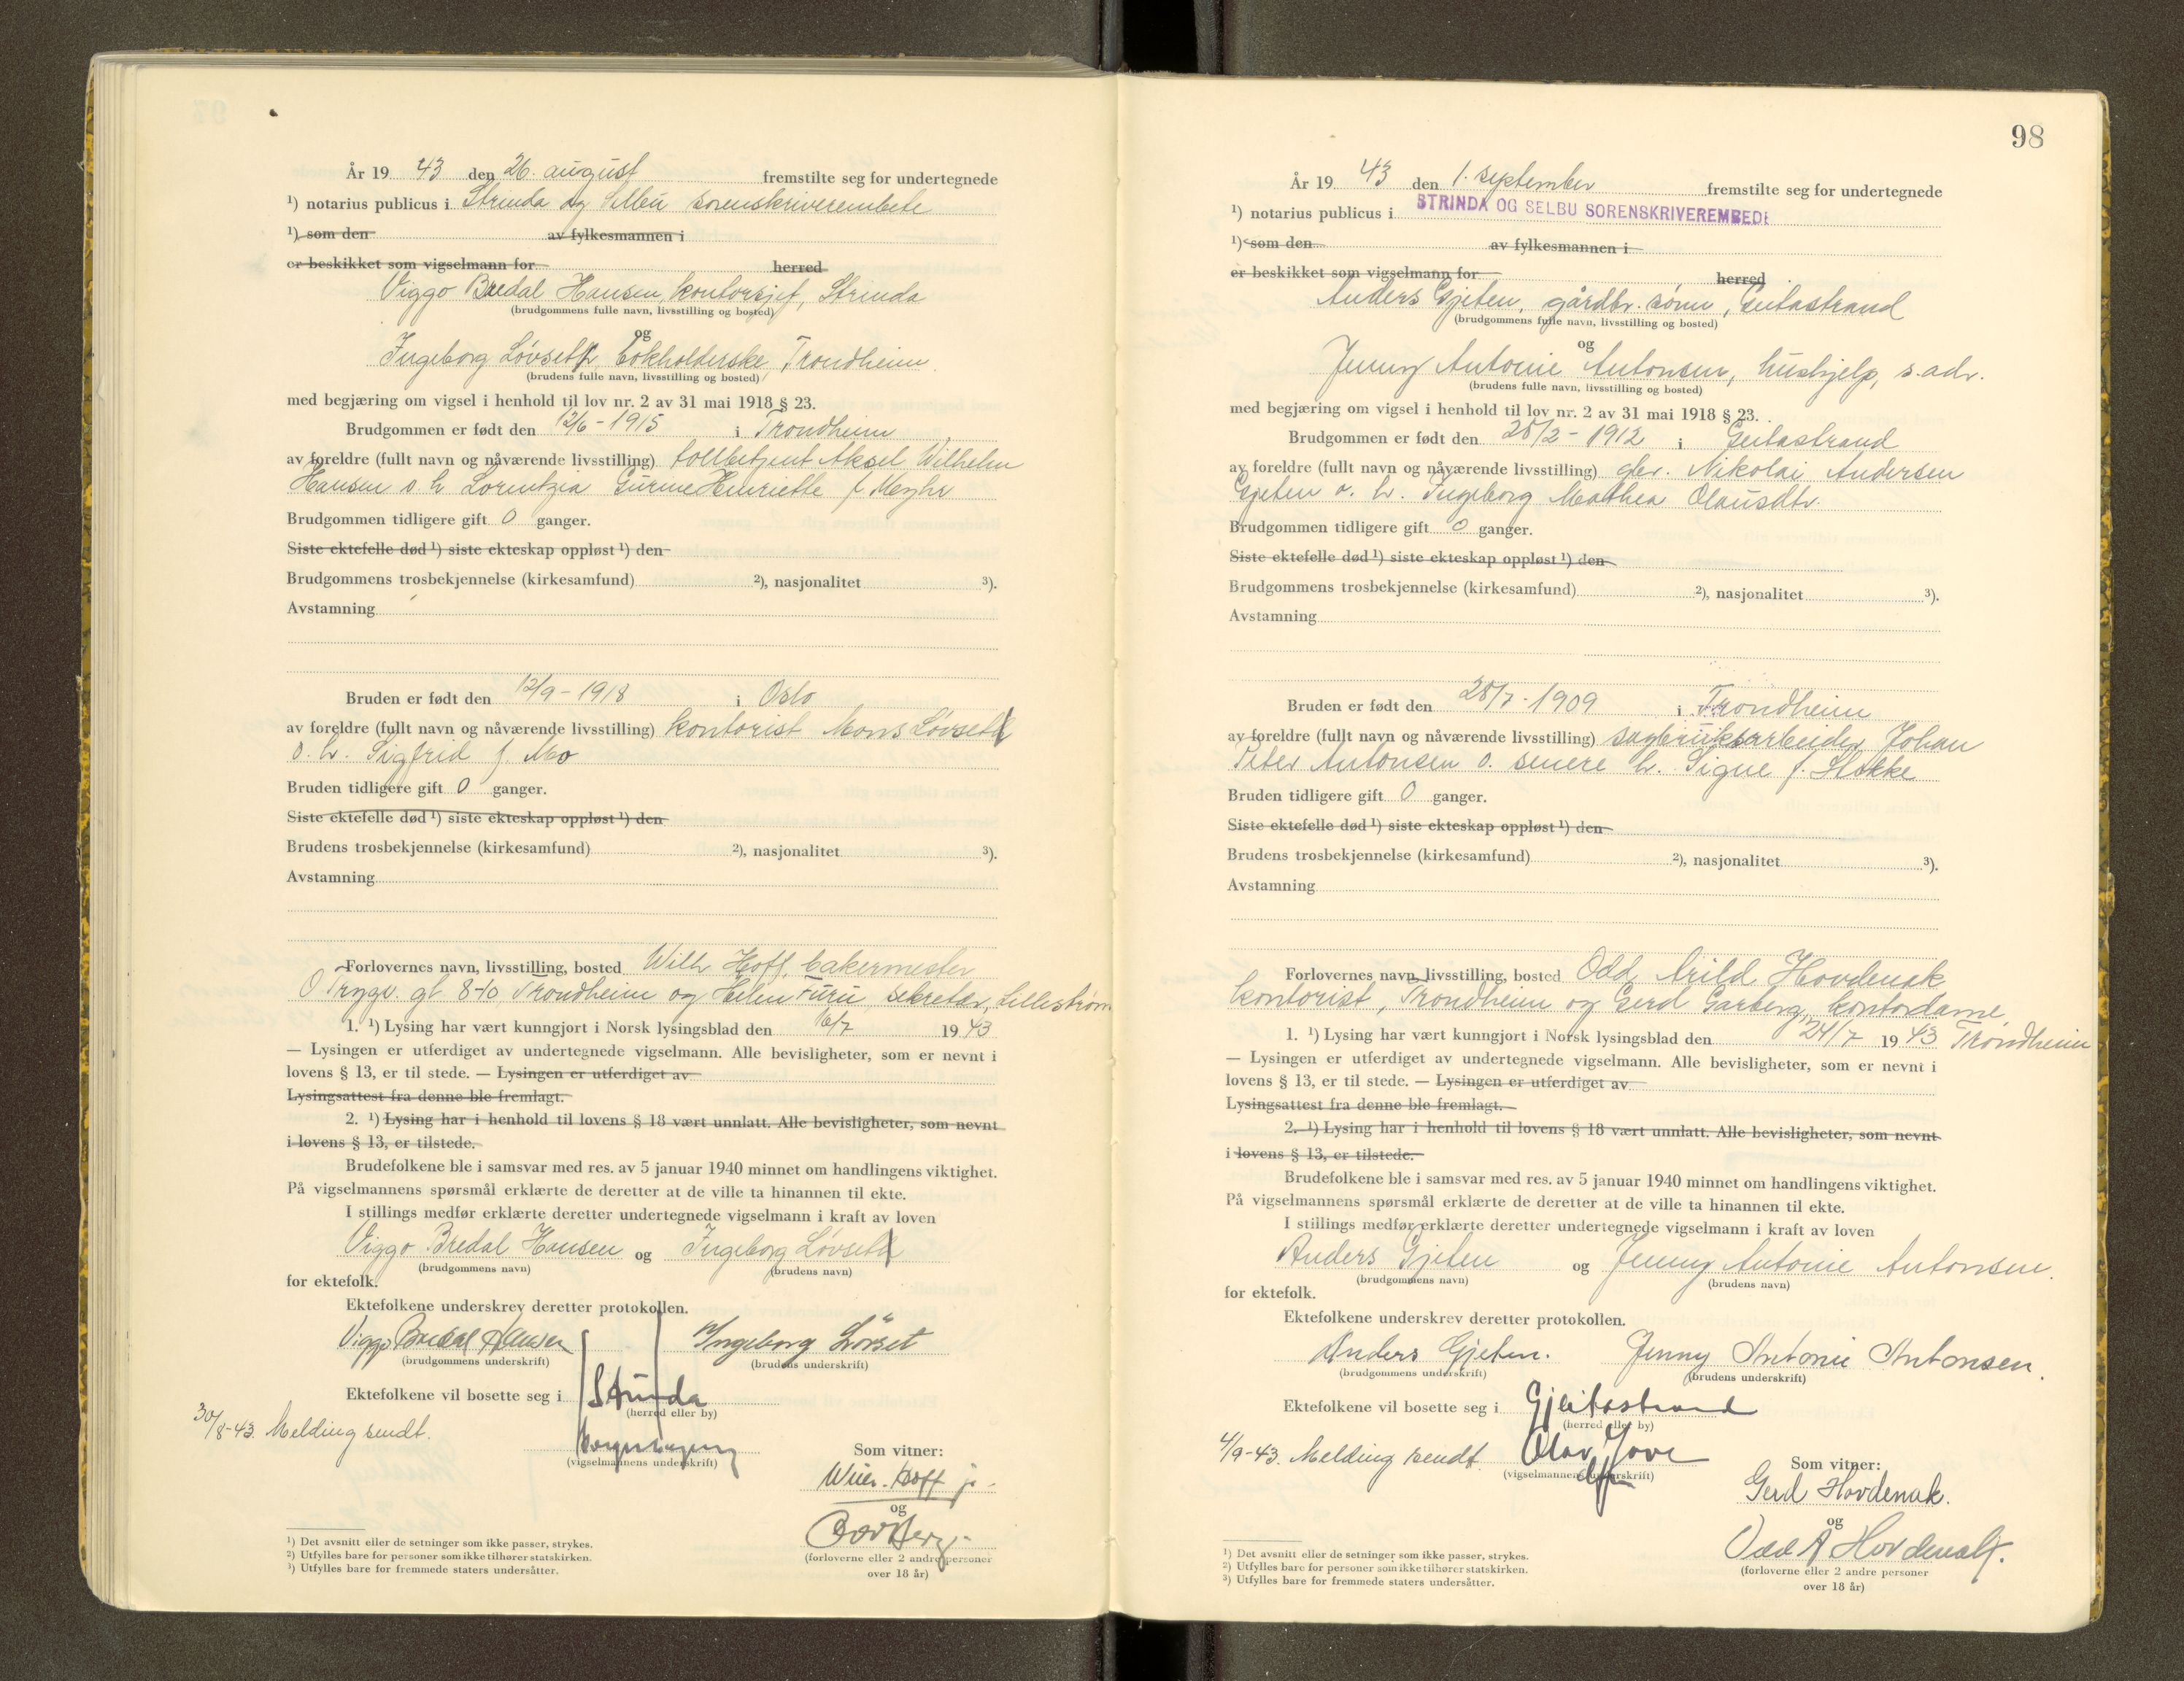 År 19 43 den 26. august fremstilte seg for undertegnede
¹) notarius publicus i Strinda og Selbu sorenskriverembete
¹) som den av fylkesmannen i
er beskikket som vigselmann for herred
Viggo Bredal Hansen, kontorsjef, Strinda
(brudgommens fulle navn, livsstilling og bosted)
og
Ingeborg Løvseth, bokholderske, Trondheim.
(brudens fulle navn, livsstilling og bosted)
med begjæring om vigsel i henhold til lov nr. 2 av 31 mai 1918 § 23.
Brudgommen er født den 12/6 - 1915 i Trondheim
av foreldre (fullt navn og nåværende livsstilling) tollbetjent Aksel Wilhelm
Hansen o. h. Lorentzea Henriette f.
Brudgommen tidligere gift 0 ganger.
Siste ektefelle død ¹) siste ekteskap oppløst ¹) den
Brudgommens trosbekjennelse (kirkesamfund) ²), nasjonalitet ³).
Avstamning
Bruden er født den 12/9 - 1918 i Oslo
av foreldre (fullt navn og nåværende livsstilling) kontorist Mons Løvseth
o. h. Sigfrid f. Mo
Bruden tidligere gift 0 ganger.
Siste ektefelle død ¹) siste ekteskap oppløst ¹) den
Brudens trosbekjennelse (kirkesamfund) ²), nasjonalitet ³).
Avstamning
Forlovernes navn, livsstilling, bosted Wilh Hoff, bakermester
O Trygv. gt 8-10 Trondheim og Helen Furu, sekretær, Lillestrøm
1. ¹) Lysing har vært kunngjort i Norsk lysingsblad den 6/7 1943
— Lysingen er utferdiget av undertegnede vigselmann. Alle bevisligheter, som er nevnt i
lovens § 13, er til stede. — Lysingen er utferdiget av
Lysingsattest fra denne ble fremlagt.
2. ¹) Lysing har i henhold til lovens § 18 vært unnlatt. Alle bevisligheter, som nevnt
i lovens § 13, er tilstede.
Brudefolkene ble i samsvar med res. av 5 januar 1940 minnet om handlingens viktighet.
På vigselmannens spørsmål erklærte de deretter at de ville ta hinannen til ekte.
I stillings medfør erklærte deretter undertegnede vigselmann i kraft av loven
Viggo Bredal Hansen og Ingeborg Løvseth
(brudgommens navn) (brudens navn)
for ektefolk.
Ektefolkene underskrev deretter protokollen.
Viggo Bredal Hansen Ingeborg Løvset
(brudgommens underskrift) (brudens underskrift)
Ektefolkene vil bosette seg i Strinda
(herred eller by)
30/8-43. Melding sendt.
(vigselmannens underskrift)
Som vitner:
Hoff jr.
og
(forloverne eller 2 andre personer
over 18 år)
¹) Det avsnitt eller de setninger som ikke passer, strykes.
²) Utfylles bare for personer som ikke tilhører statskirken.
³) Utfylles bare for fremmede staters undersåtter.
98
År 19 43 den 1. september fremstilte seg for undertegnede
¹) notarius publicus i STRINDA OG SELBU SORENSKRIVEREMBEDE
¹) som den av fylkesmannen i
er beskikket som vigselmann for herred
Anders Gjeten, gårdbr. sønn, Geitastrand
(brudgommens fulle navn, livsstilling og bosted)
og
Jenny Antonie Antonsen, hushjelp, s. adr.
(brudens fulle navn, livsstilling og bosted)
med begjæring om vigsel i henhold til lov nr. 2 av 31 mai 1918 § 23.
Brudgommen er født den 25/2 - 1912 i Geitastrand
av foreldre (fullt navn og nåværende livsstilling) gbr. Nikolai Andersen
Gjeten o. h. Ingeborg Mathea Olausdtr.
Brudgommen tidligere gift 0 ganger.
Siste ektefelle død ¹) siste ekteskap oppløst ¹) den
Brudgommens trosbekjennelse (kirkesamfund) ²), nasjonalitet ³).
Avstamning
Bruden er født den 28/7 - 1909 i Trondheim
av foreldre (fullt navn og nåværende livsstilling) sagbruksarbeider Johan
Peter Antonsen o. senere h. Signe f. Stokke
Bruden tidligere gift 0 ganger.
Siste ektefelle død ¹) siste ekteskap oppløst ¹) den
Brudens trosbekjennelse (kirkesamfund) ²), nasjonalitet ³).
Avstamning
Forlovernes navn, livsstilling, bosted Odd Arild Hovdenak
kontorist, Trondheim og Gerd Garberg, kontordame,
1. ¹) Lysing har vært kunngjort i Norsk lysingsblad den 24/7 1943 Trondheim
— Lysingen er utferdiget av undertegnede vigselmann. Alle bevisligheter, som er nevnt i
lovens § 13, er til stede. — Lysingen er utferdiget av
Lysingsattest fra denne ble fremlagt.
2. ¹) Lysing har i henhold til lovens § 18 vært unnlatt. Alle bevisligheter, som nevnt
i lovens § 13, er tilstede.
Brudefolkene ble i samsvar med res. av 5 januar 1940 minnet om handlingens viktighet.
På vigselmannens spørsmål erklærte de deretter at de ville ta hinannen til ekte.
I stillings medfør erklærte deretter undertegnede vigselmann i kraft av loven
Anders Gjeten og Jenny Antonie Antonsen.
(brudgommens navn) (brudens navn)
for ektefolk.
Ektefolkene underskrev deretter protokollen.
Anders Gjeten. Jenny Antonie Antonsen.
(brudgommens underskrift) (brudens underskrift)
Ektefolkene vil bosette seg i Gjeitastrand
(herred eller by)
4/9-43. Melding sendt. Olav
(vigselmannens underskrift)
Som vitner:
Gerd Hovdenak.
og
Odd A Hovdenak.
(forloverne eller 2 andre personer
over 18 år)
¹) Det avsnitt eller de setninger som ikke passer, strykes.
²) Utfylles bare for personer som ikke tilhører statskirken.
³) Utfylles bare for fremmede staters undersåtter.